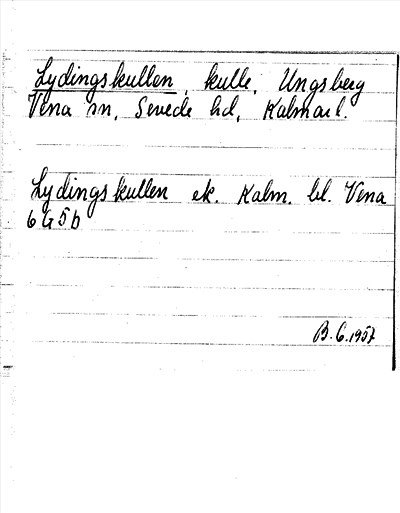 Lydingskullen, kulle, Ungsberg
Vena sn, Sevede hd, Kalmar l.
Lydingskullen ek. Kalm. bl. Vena
6 G 5 b
B. G. 1957